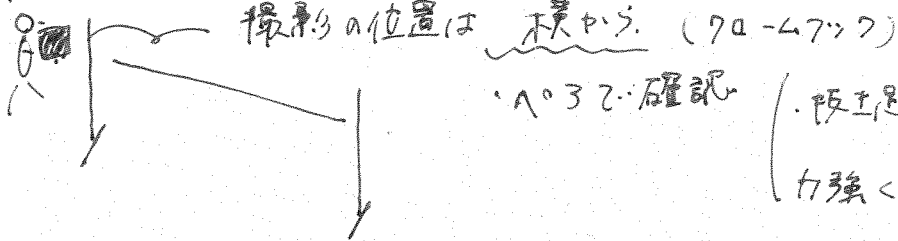 撮影の位置は 横から (クロームブック)
・ペアで確認
・抜き足
力強く